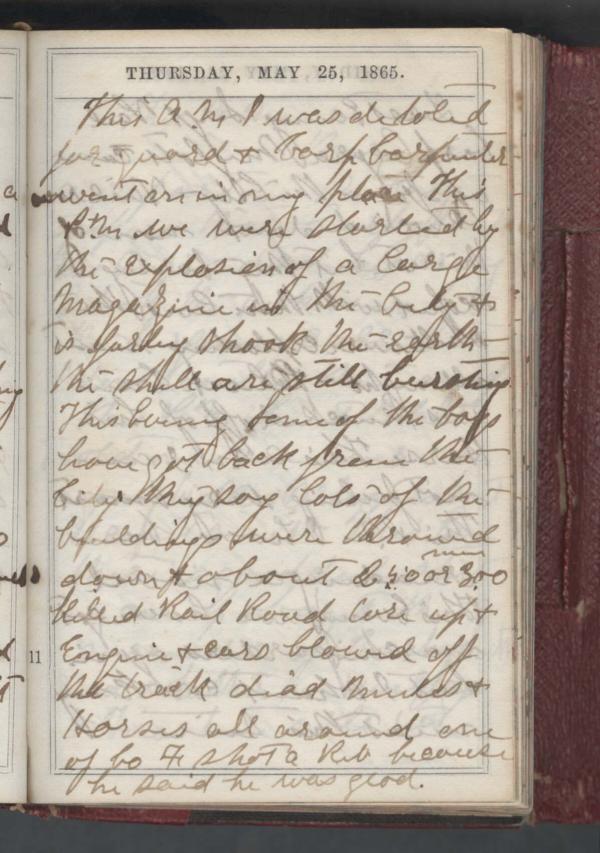 THURSDAY, MAY 25, 1865.
This A.M I was detoled
for guard & Corp Carpenter
went on in my place This
P.M we were startled by
the explosion of a large
Magazine in the City &
is farley shook the earth
the shell are still bursting
This Evning some of the boys
have got back from the
City They say lots of the
buildings were thround
down & about 250 or 300
men
Killed Rail Road tore up &
Engine & cars blowed off
the track dead mules &
Horses all around one
of Co F shot a Reb because
he said he was glad.
11